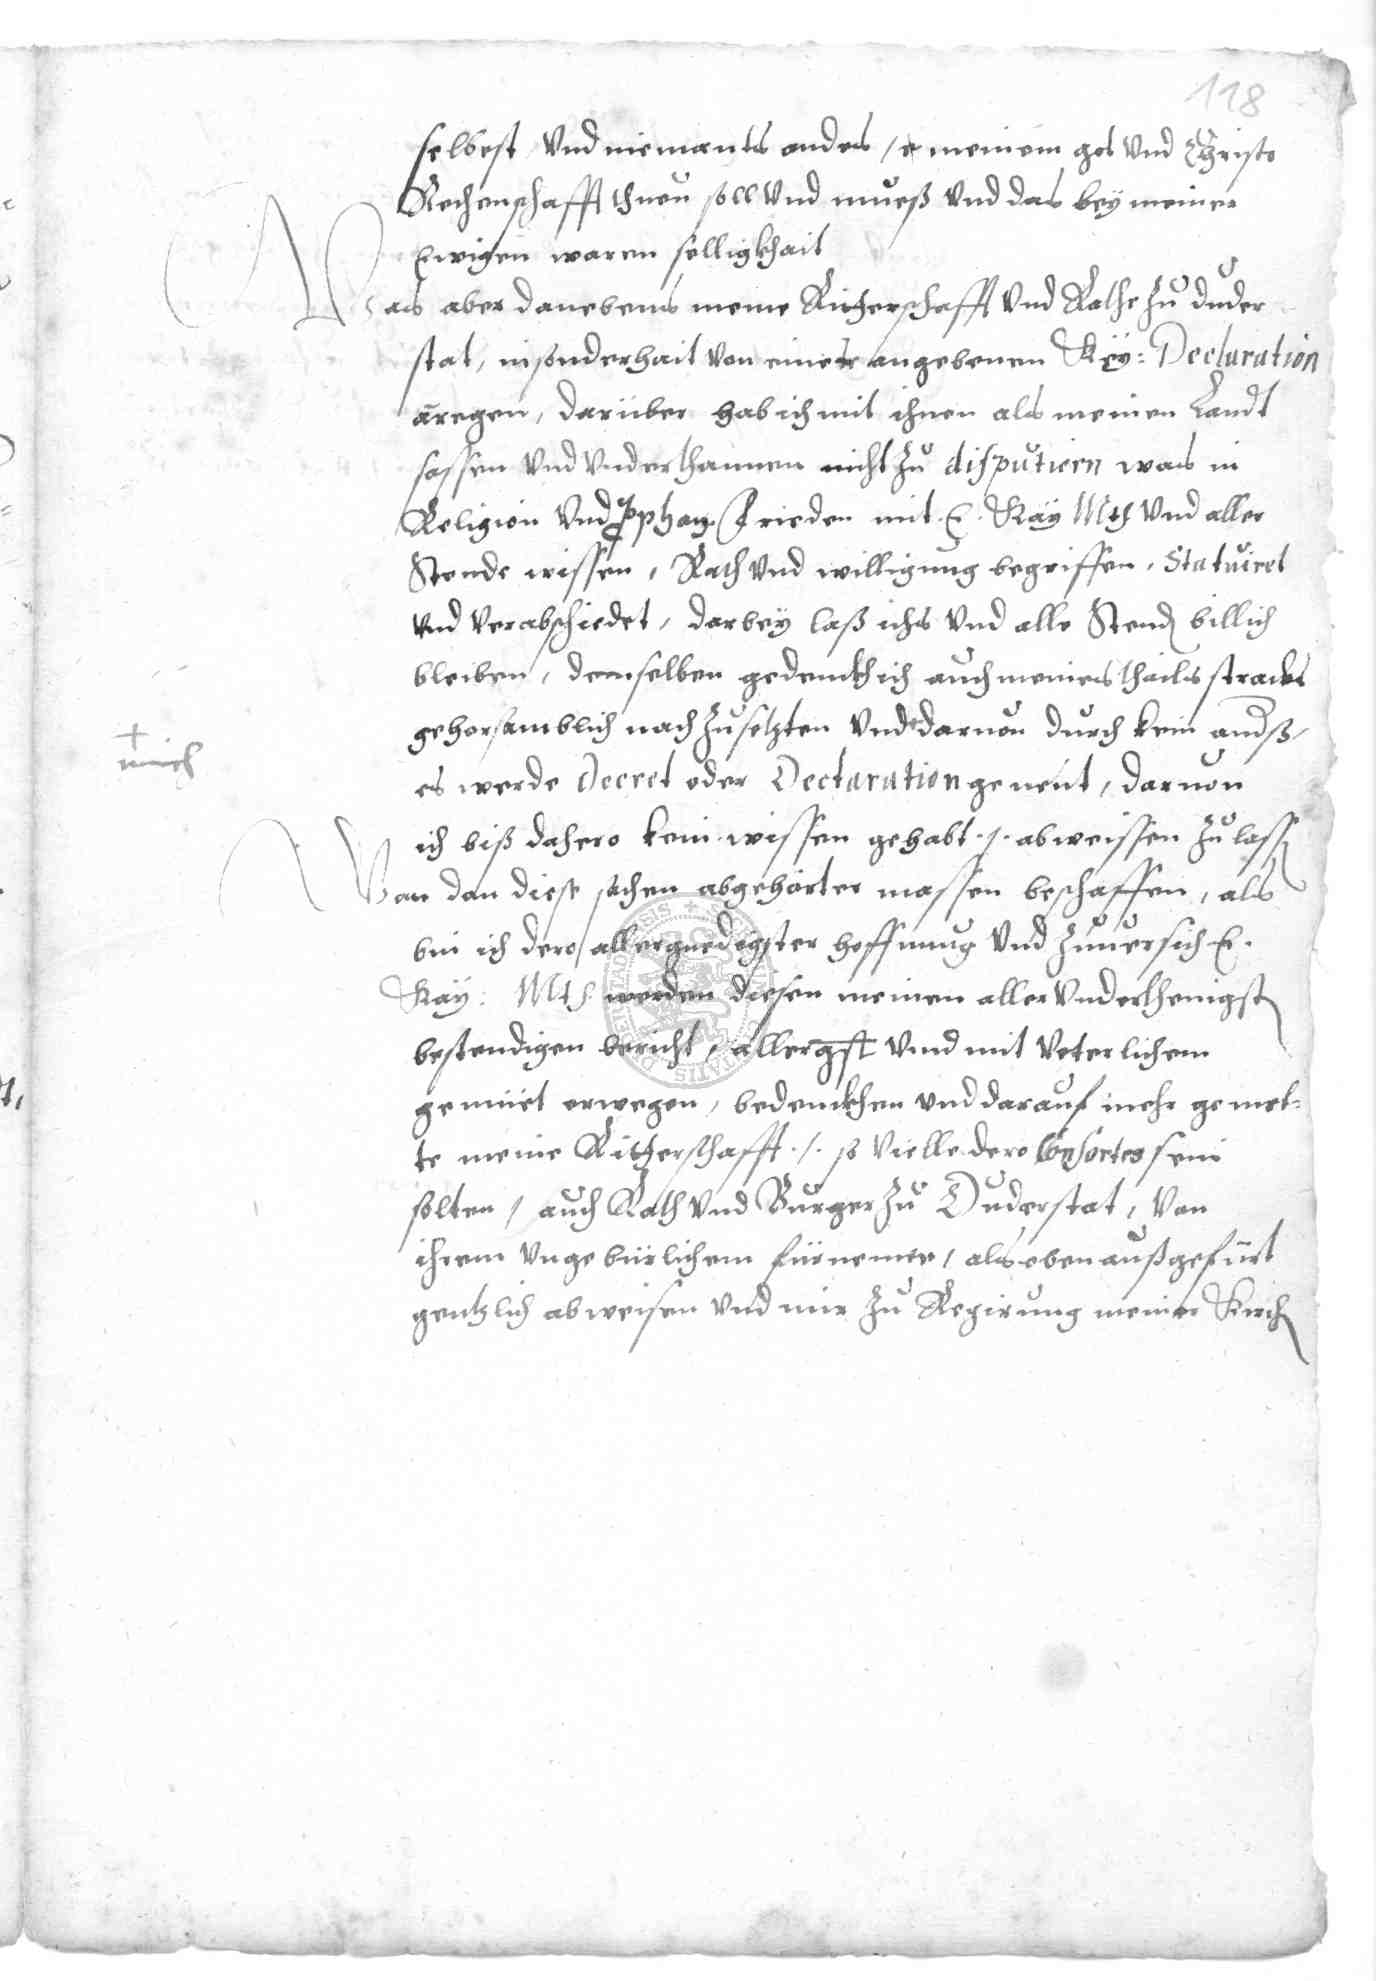 118
selbest Vnd niemants anders / meinem got Vnd Christo
Rechenschafft thuen soll Vnd mueß Vnd das bey meiner
Ewigen waren selligkhait
Was aber danebens meine Ritterschafft Vnd Rathe Zu duder
stat, in sonderhait Von einer angebenen Kay: Declaration
anregen, darüber hab ich mit ihnen als meinen Landt
sassen Vnd Vnderthannen nicht Zu disputiern was in
Religion Vnd Prophan Frieden mit E. Kay Mtt Vnd aller
Stende wissen, Rath Vnd willigung begriffen, Statuiret
Vnd Verabschiedet, darbey laß ichs Vnd alle Stend billich
bleiben, demselben gedenckh ich auch meines thails stracks
gehorsamblich nach Zusetzten Vnd darvon durch kein anders,
+
mich
es werde Decret oder Declaration genent, darvon
ich biß dahero kein wissen gehabt ./. abweissen Zu lassen
Wan dan diese sachen abgehörter massen beschaffen, als
bin ich dero allergnedigster hoffnung Vnd Zuuersich E.
Kay: Mtt werden diesen meinen aller Vnderthenigsten
bestendigen bericht, allergst Vnnd mit Veterlichem
gemüet erwegen, bedenckhen Vnd darauf mehr gemel-
te meine Ritterschafft ./. so Vielle dero Consortes sein
solten / auch Rath Vnd Burger Zu Duderstat, Von
ihrem Vngebürlichem fürnemen, als oben außgefürt
gentzlich abweisen Vnd mir Zu Regirung meiner Kirchen